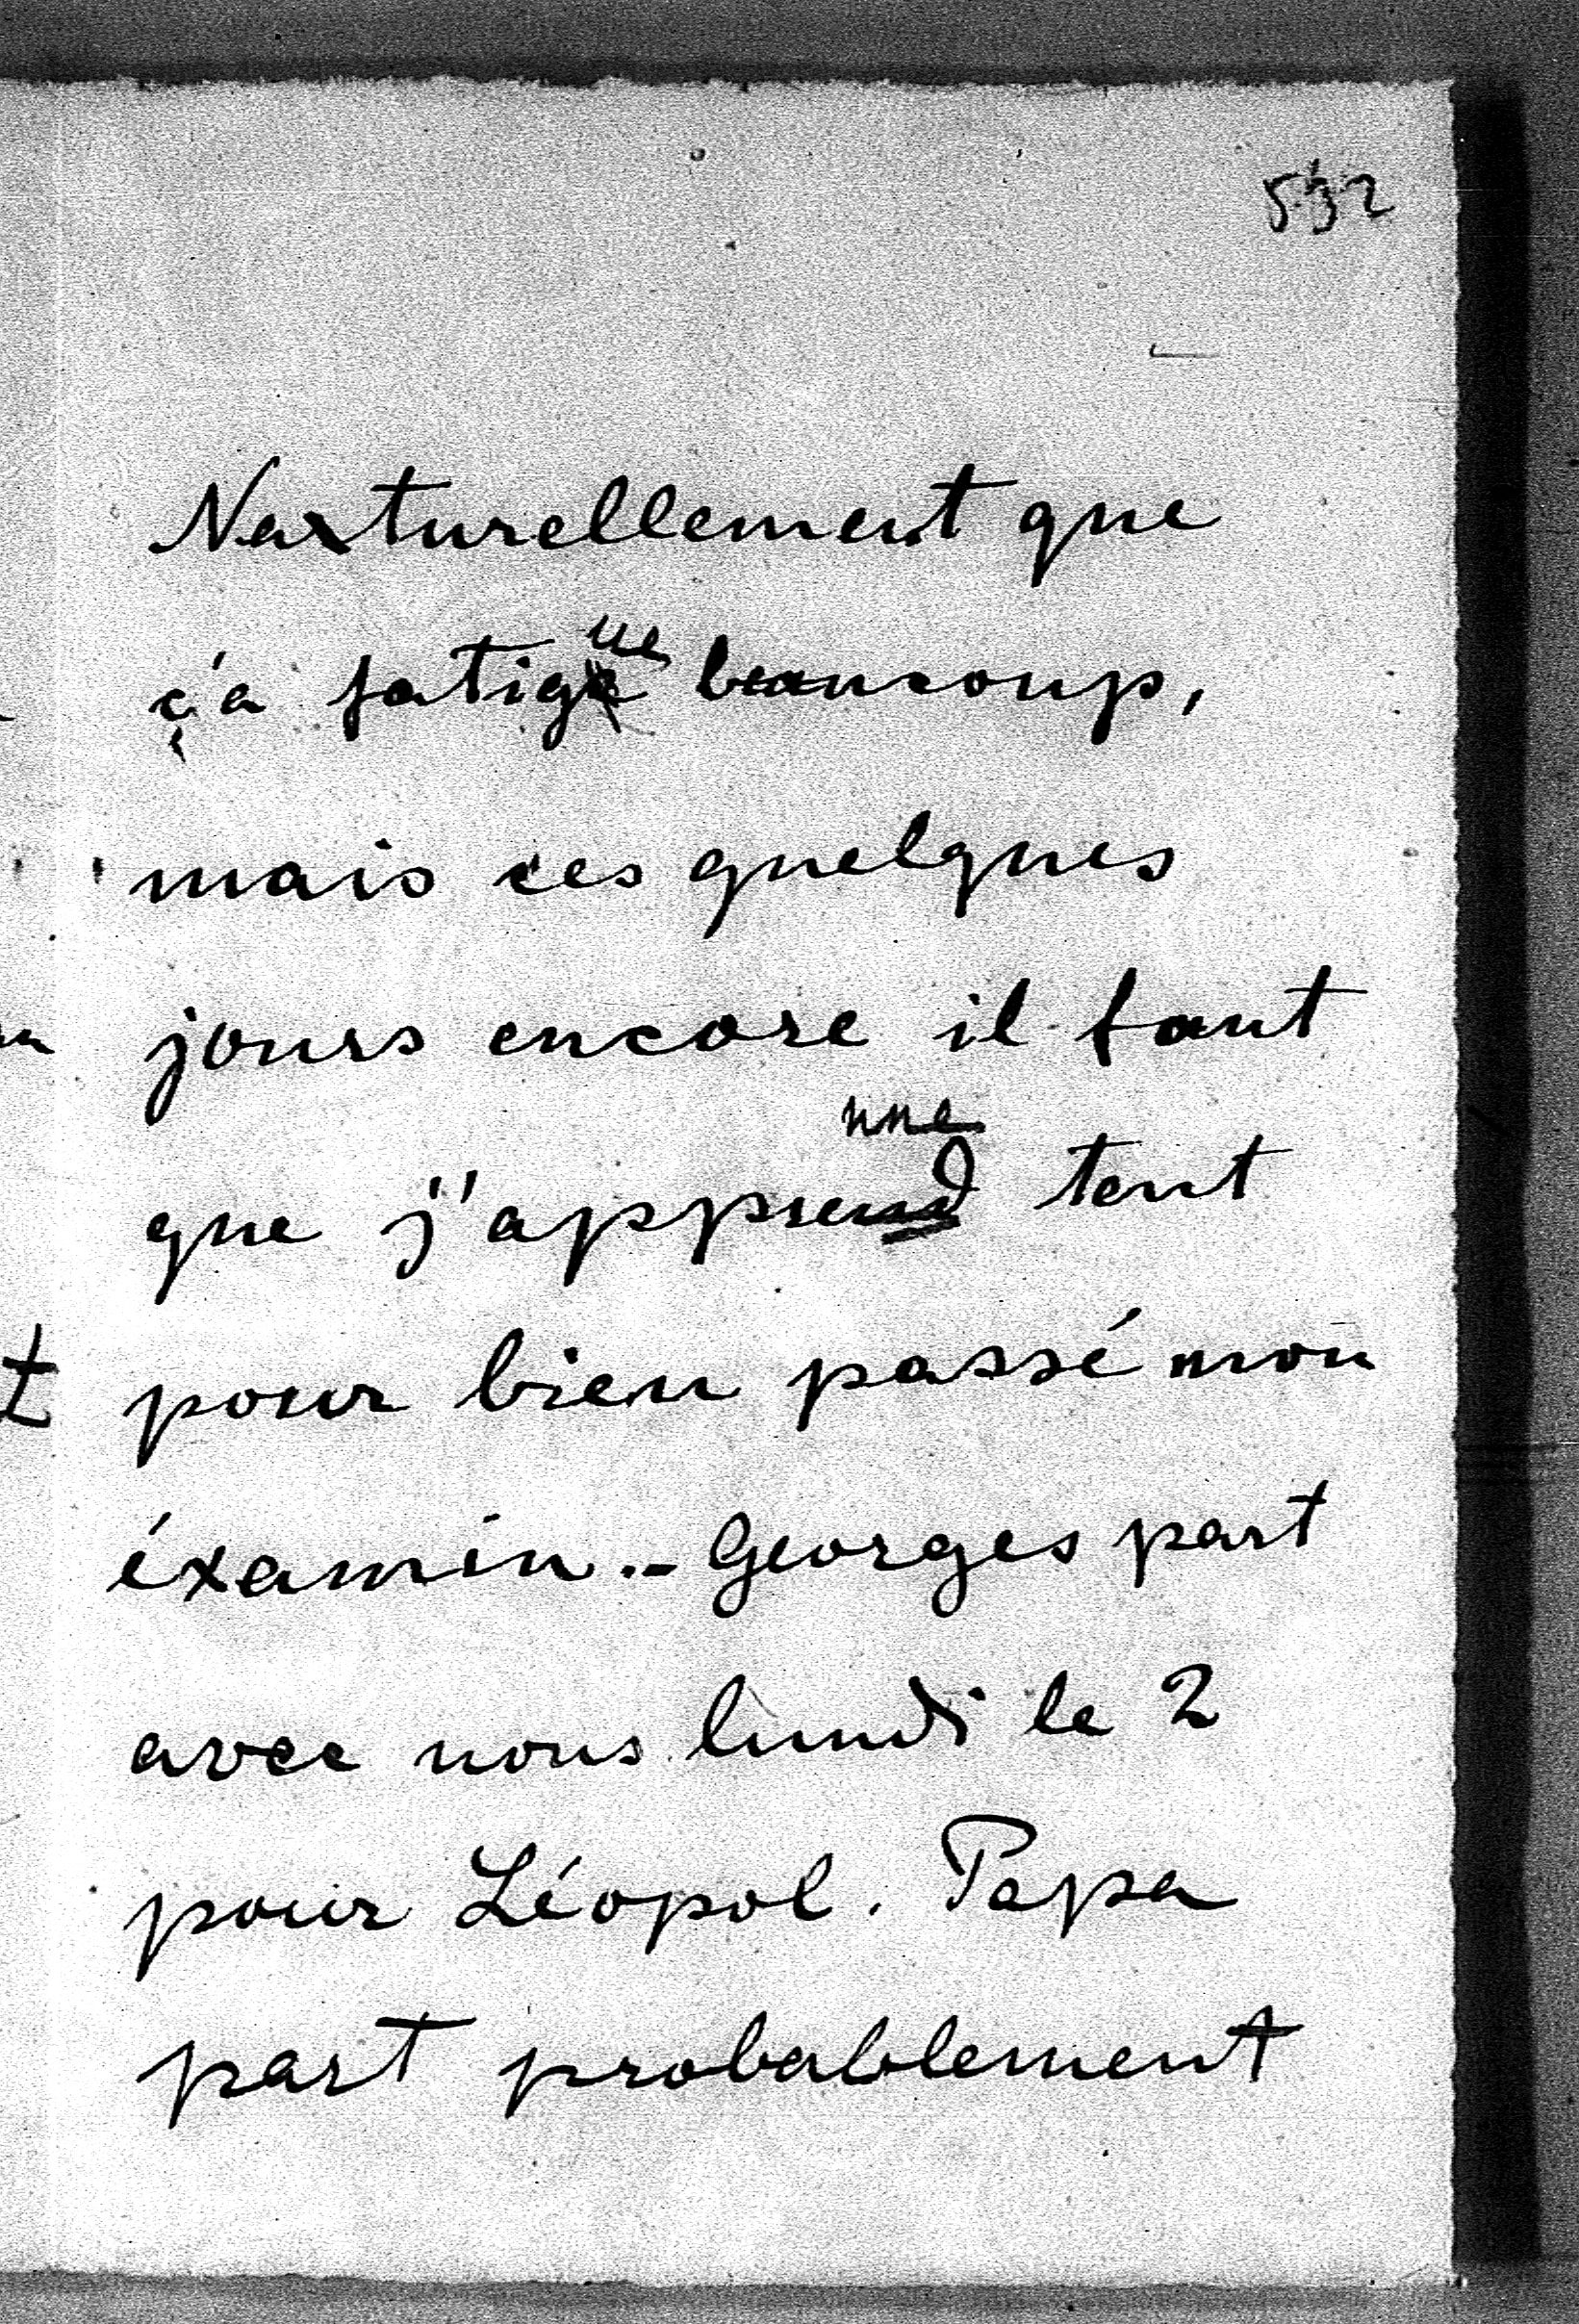 532
Naturellement que
ç'a fatigue beaucoup,
mais ces quelques
jours encore il faut
que j'apprenne tout
pour bien passé mon
éxamin. – Georges part
avec nous lundi le 2
pour Léopol. Papa
part probablement